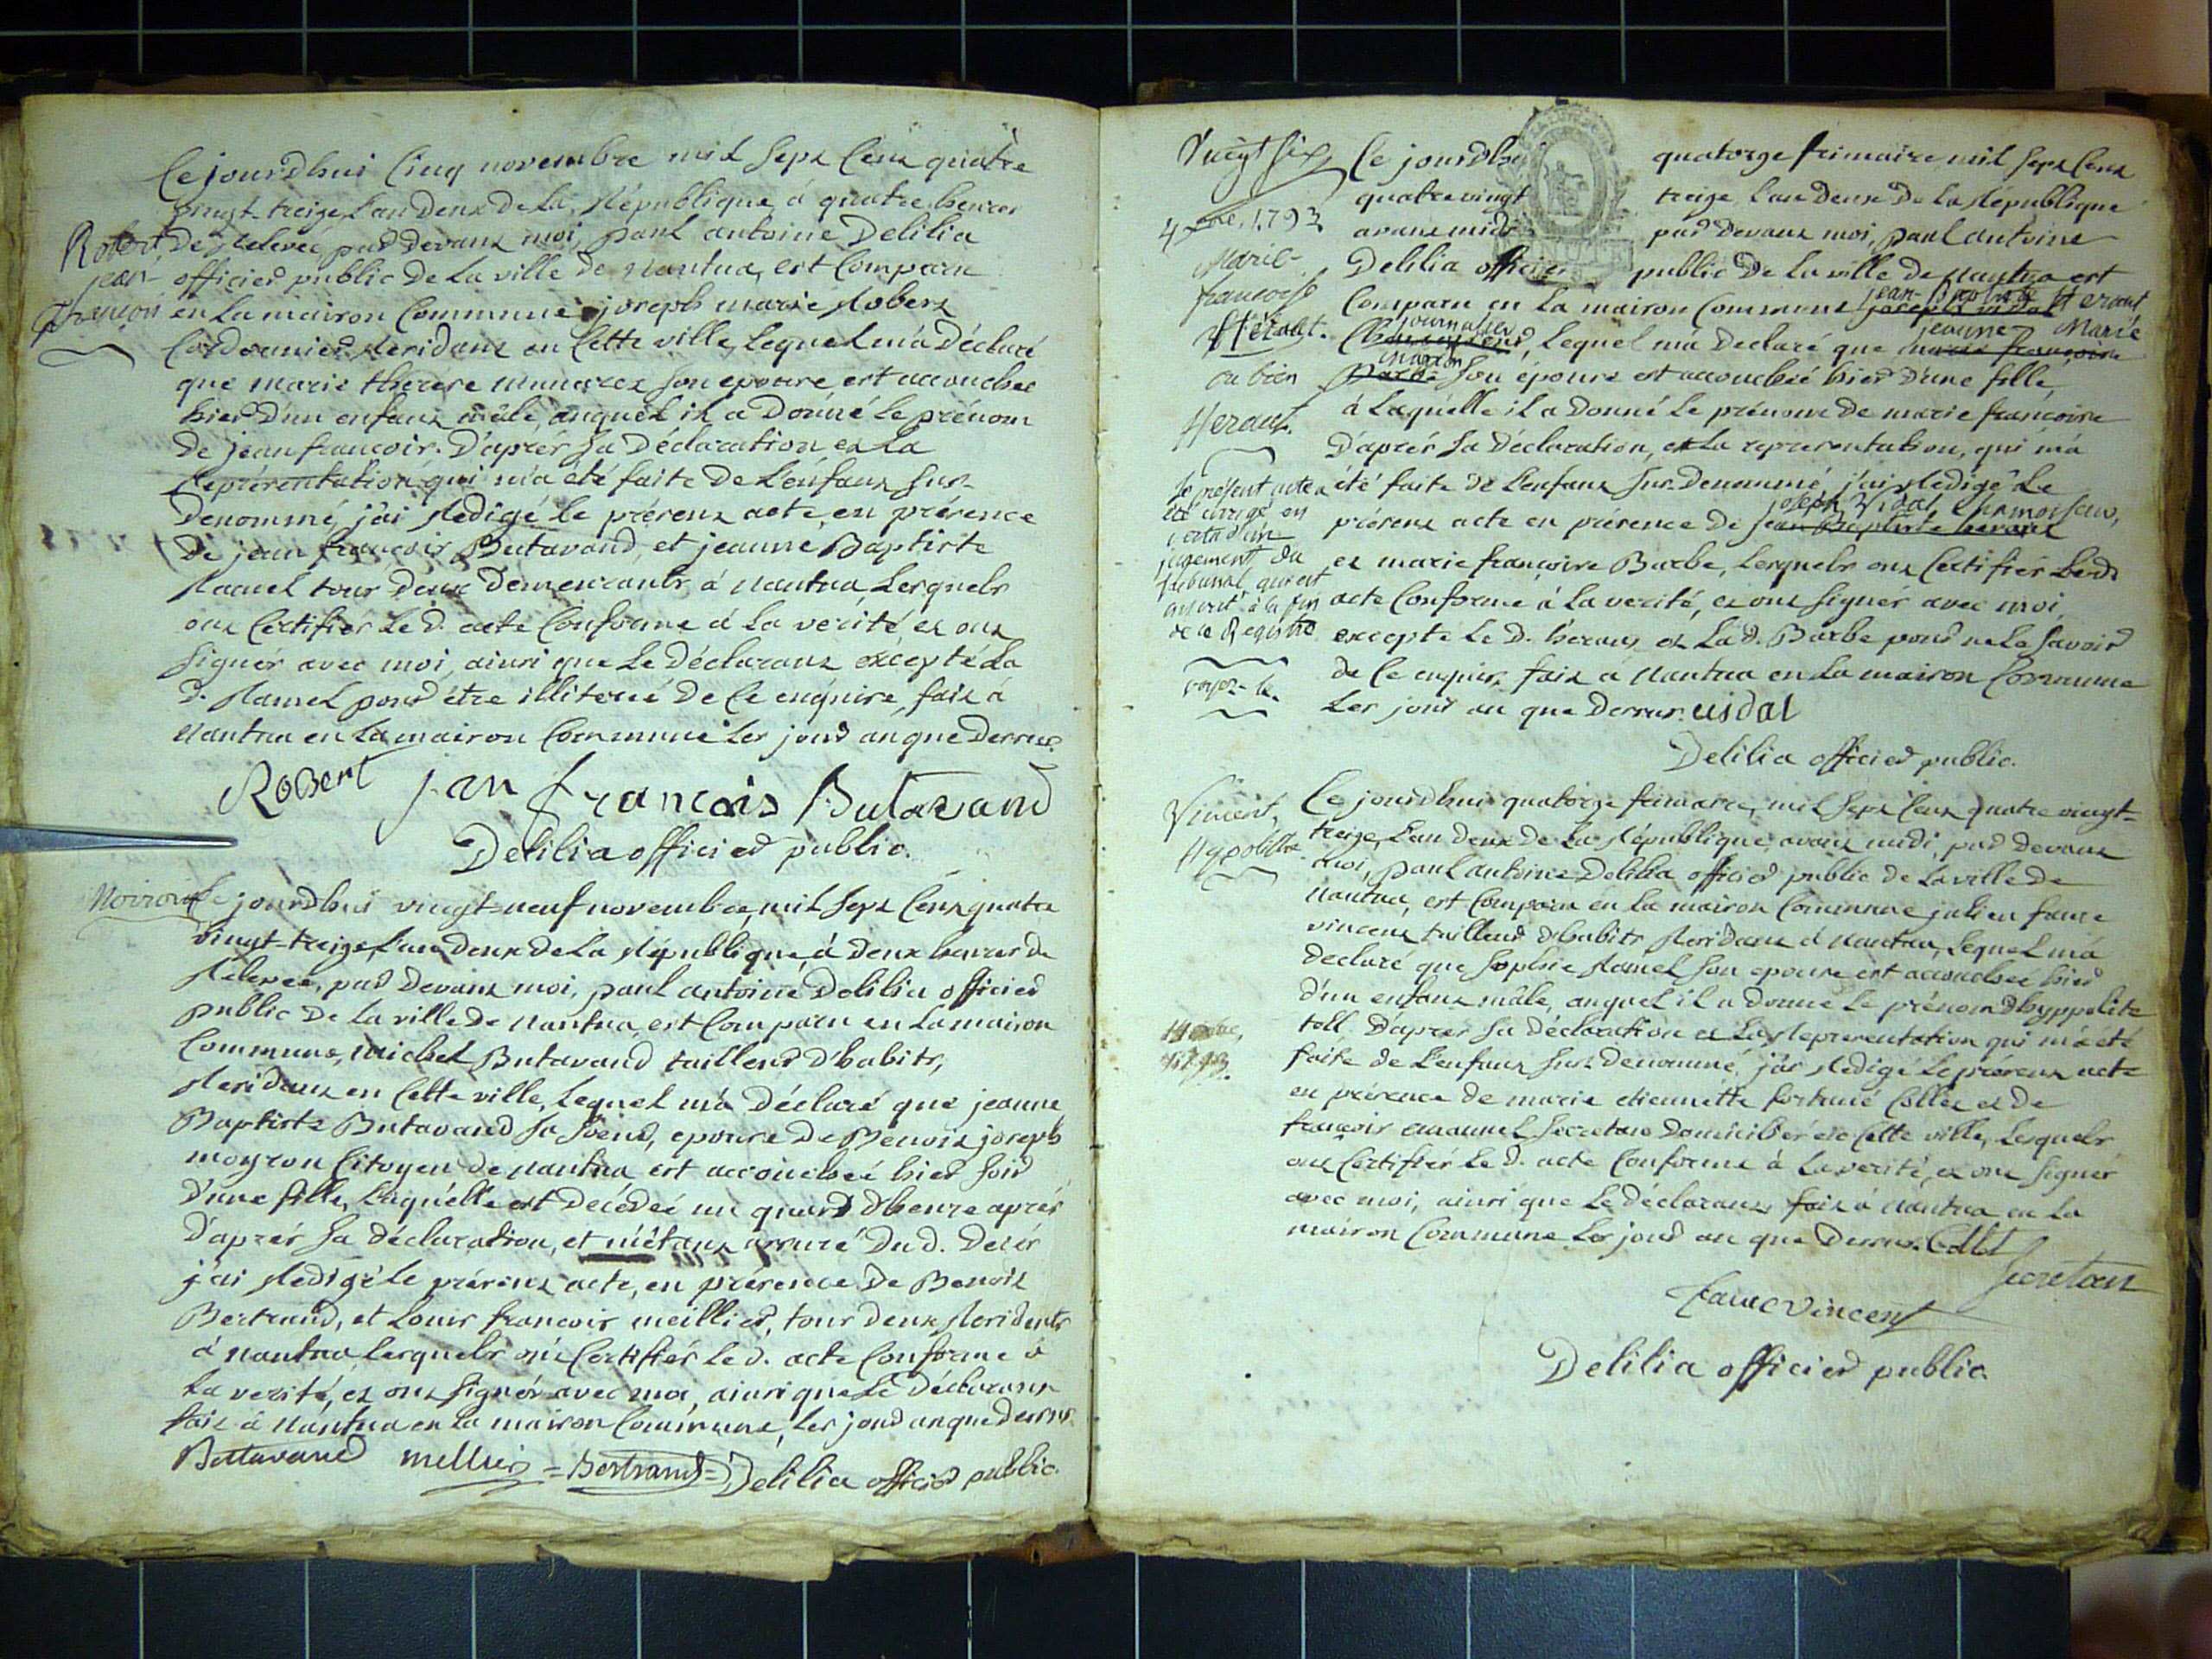 Ce jourdhui Cinq novembre mil Sept Cent quatre
vingt-treize, L'an Deux de la République, à quatre heures
Robert, de Relevée, par devant moi, paul antoine Delilia
jean- officier public de la ville de nantua, est Comparu
françois en la maison Commune joseph marie Robert
Cordonnier Residant en Cette ville, Lequel m'a Déclaré
que marie therese son epouse est accouchée
hier d'un enfant mâle, auquel il a Donné le prénom
de jean francois. D'après sa Déclaration et la
Représentation qui m'a été faite de L'enfant sus-
Denommé, j'ai Redigé le présent acte, en présence
de jean françois Butavand, et jeanne Baptiste
Ramel tous Deux Demeurants à nantua Lesquels
ont Certifiés Le d. acte Conforme à la verité, et ont
signés avec moi, ainsi que le Déclarant excepté la
d. Ramel pour être illiterée de Ce enquise, fait à
nantua en la maison Commune les jour an que Dessus.
Robert jan francois Butavand
Delilia officier public.
Moiron Ce jourdhui vingt-neuf novembre, mil Sept Cent quatre
vingt-treize, L'an deux de la République, à Deux heures de
Relevée, par Devant moi, paul antoine Delilia officier
public de la ville de nantua, est Comparu en la maison
Commune, michel Butavand tailleur d'habits,
Residant en Cette ville, Lequel m'a Déclaré que jeanne
Baptiste Butavand sa soeur, epouse de Benoit joseph
moyron Citoyen de nantua est accouchée hier soir
d'une fille, Laquelle est Decédée un quard d'heure après
d'après sa déclaration, et m'étant assuré Du d. Decès
j'ai Redigé le présent acte, en présence de Benoit
Bertrand, et Louis francois meillier, tous deux Residents
à nantua Lesquels ont Certifiés Le d. acte Conforme à
La verité, et ont signés avec moi, ainsi que le Déclarant
fait à nantua en la maison Commune, les jour an que dessus.
Buttavand mellier =Bertrand= Delilia officier public.
Vingt six Ce jourdhui quatorze frimaire mil Sept Cent
quatre vingt treize L'an Deux de la République
4 Xbre. 1793 avant midi par Devant moi, paul antoine
Marie- Delilia officier public de la ville de nantua est
francoise Comparu en la maison Commune joseph vidal jean-Baptiste Heraut
Héralt. journalier, Lequel m'a Declaré que marie françoise jeanne Marie
ou bien son épouse est accouchée hier d'une fille,
Heraut. à Laquelle il a Donné le prénom de marie francoise
D'après sa Déclaration, et la representation, qui m'a
Le présent acte a été faite de L'enfant sus-Denommé, j'ai Redigé le
été corrigé en présent acte en présence de jean Baptiste heraut joseph Vidal chamoiseur,
vertu d'un
jugement du et marie françoise Barbe, Lesquels ont Certifiés Led.
tribunal qui est
inscrit à la fin acte Conforme à la verité, et ont signés avec moi
de ce Registre excepté le d. heraut et La d. Barbe pour ne le savoir
voyez-le. de Ce enquis, fait à nantua en la maison Commune
Les jour an que Dessus. uidal
Delilia officier public.
Vincent, Ce jourdhui quatorze frimaire, mil Sept Cent quatre vingt-
Hypolitte treize, L'an deux de la République, avant midi, par devant
moi, paul antoine Delilia officier public de la ville de
nantua, est Comparu en la maison Commune julien faure
vincent tailleur d'habits Residant à nantua, Lequel m'a
declaré que Sophie Ramel son epouse est accouchée hier
d'un enfant mâle, auquel il a donné le prénom d'hyppolite
toll. D'après sa Déclaration et la Representation qui m'a été
1793. faite de L'enfant sus-denommé, j'ai Redigé le présent acte
en présence de marie etiennette fortunée Collet et de
françois emanuel Secretan Domiciliés en Cette ville, Lesquels
ont Certifiés Le d. acte Conforme à la verité, et ont signés
avec moi, ainsi que Le déclarant, fait à nantua en la
maison Commune les jour an que Dessus. Collet
Secretan
faure Vincent
Delilia officier public.